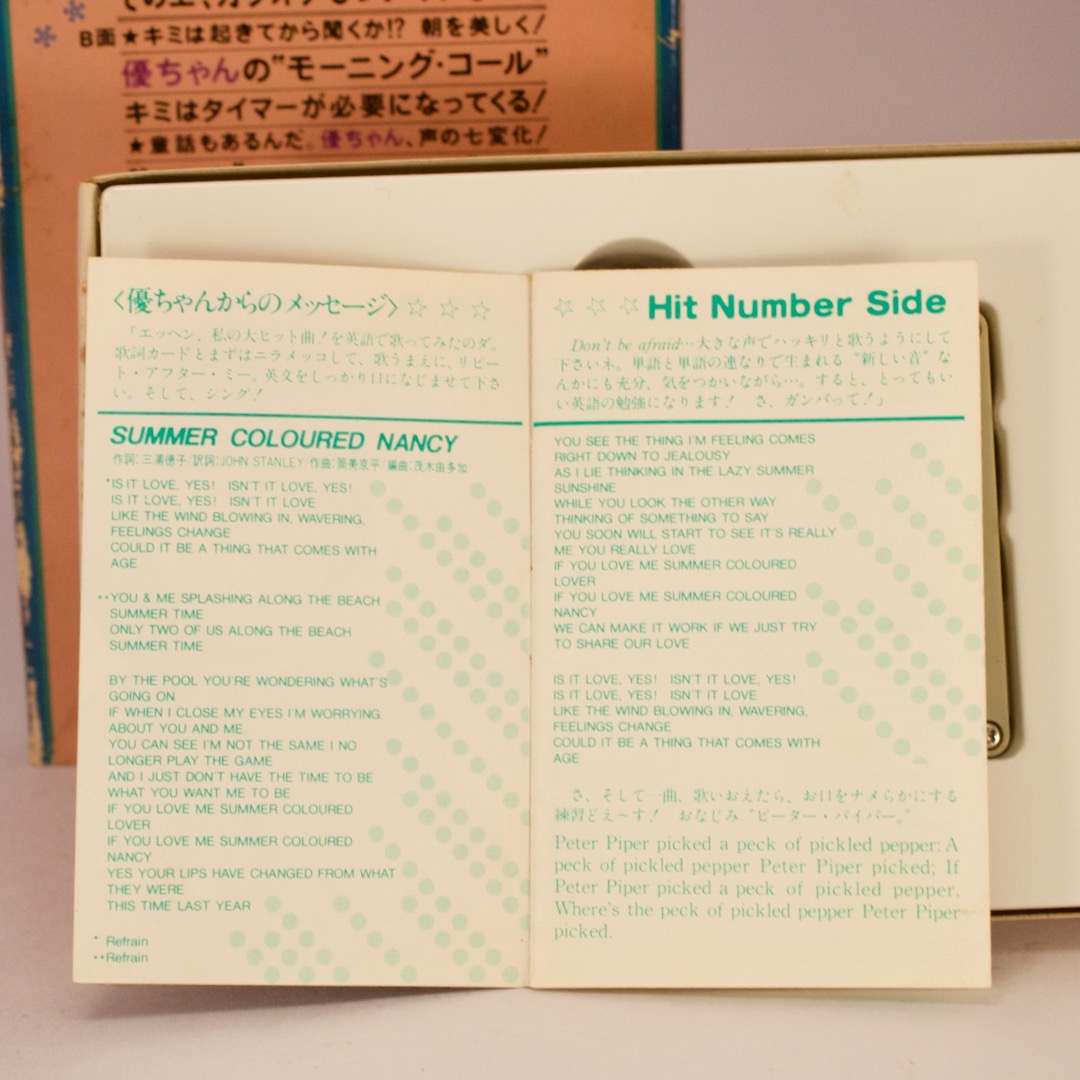 B面★キミは起きてから聞くか!? 朝を美しく!
優ちゃんの"モーニング・コール"
キミはタイマーが必要になってくる!
★童話もあるんだ。優ちゃん、声の七変化!
〈優ちゃんからのメッセージ〉☆ ☆ ☆
「エッヘン、私の大ヒット曲!を英語で歌ってみたのダ。
歌詞カードとまずはニラメッコして、歌うまえに、リピー
ト・アフター・ミー。英文をしっかり口になじませて下さ
い。そして、シング!
SUMMER COLOURED NANCY
作詞:三浦徳子/訳詞:JOHN STANLEY/作曲:筒美京平/編曲:茂木由多加
*IS IT LOVE, YES! ISN'T IT LOVE, YES!
IS IT LOVE, YES! ISN'T IT LOVE
LIKE THE WIND BLOWING IN, WAVERING,
FEELINGS CHANGE
COULD IT BE A THING THAT COMES WITH
AGE
**YOU & ME SPLASHING ALONG THE BEACH
SUMMER TIME
ONLY TWO OF US ALONG THE BEACH
SUMMER TIME
BY THE POOL YOU'RE WONDERING WHAT'S
GOING ON
IF WHEN I CLOSE MY EYES I'M WORRYING
ABOUT YOU AND ME
YOU CAN SEE I'M NOT THE SAME I NO
LONGER PLAY THE GAME
AND I JUST DON'T HAVE THE TIME TO BE
WHAT YOU WANT ME TO BE
IF YOU LOVE ME SUMMER COLOURED
LOVER
IF YOU LOVE ME SUMMER COLOURED
NANCY
YES YOUR LIPS HAVE CHANGED FROM WHAT
THEY WERE
THIS TIME LAST YEAR
* Refrain
**Refrain
☆ ☆ ☆ Hit Number Side
Don't be afraid…大きな声でハッキリと歌うようにして
下さいネ。単語と単語の連なりで生まれる"新しい音"な
んかにも充分、気をつかいながら…。すると、とってもい
い英語の勉強になります! さ、ガンバって!」
YOU SEE THE THING I'M FEELING COMES
RIGHT DOWN TO JEALOUSY
AS I LIE THINKING IN THE LAZY SUMMER
SUNSHINE
WHILE YOU LOOK THE OTHER WAY
THINKING OF SOMETHING TO SAY
YOU SOON WILL START TO SEE IT'S REALLY
ME YOU REALLY LOVE
IF YOU LOVE ME SUMMER COLOURED
LOVER
IF YOU LOVE ME SUMMER COLOURED
NANCY
WE CAN MAKE IT WORK IF WE JUST TRY
TO SHARE OUR LOVE
IS IT LOVE, YES! ISN'T IT LOVE, YES!
IS IT LOVE, YES! ISN'T IT LOVE
LIKE THE WIND BLOWING IN, WAVERING,
FEELINGS CHANGE
COULD IT BE A THING THAT COMES WITH
AGE
さ、そして一曲、歌いおえたら、お口をナメらかにする
練習どえ〜す! おなじみ"ピーター・パイパー。"
Peter Piper picked a peck of pickled pepper: A
peck of pickled pepper Peter Piper picked; If
Peter Piper picked a peck of pickled pepper,
Where's the peck of pickled pepper Peter Piper
picked.